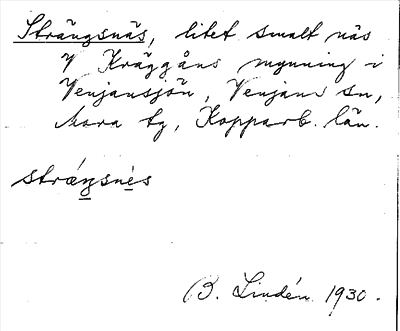 Strängsnäs, litet smalt näs
V Kräggåns mynning i
Venjansjön, Venjans sn,
Mora tg, Kopparb. län.
stræ´ŋsnès
B. Lindén 1930.